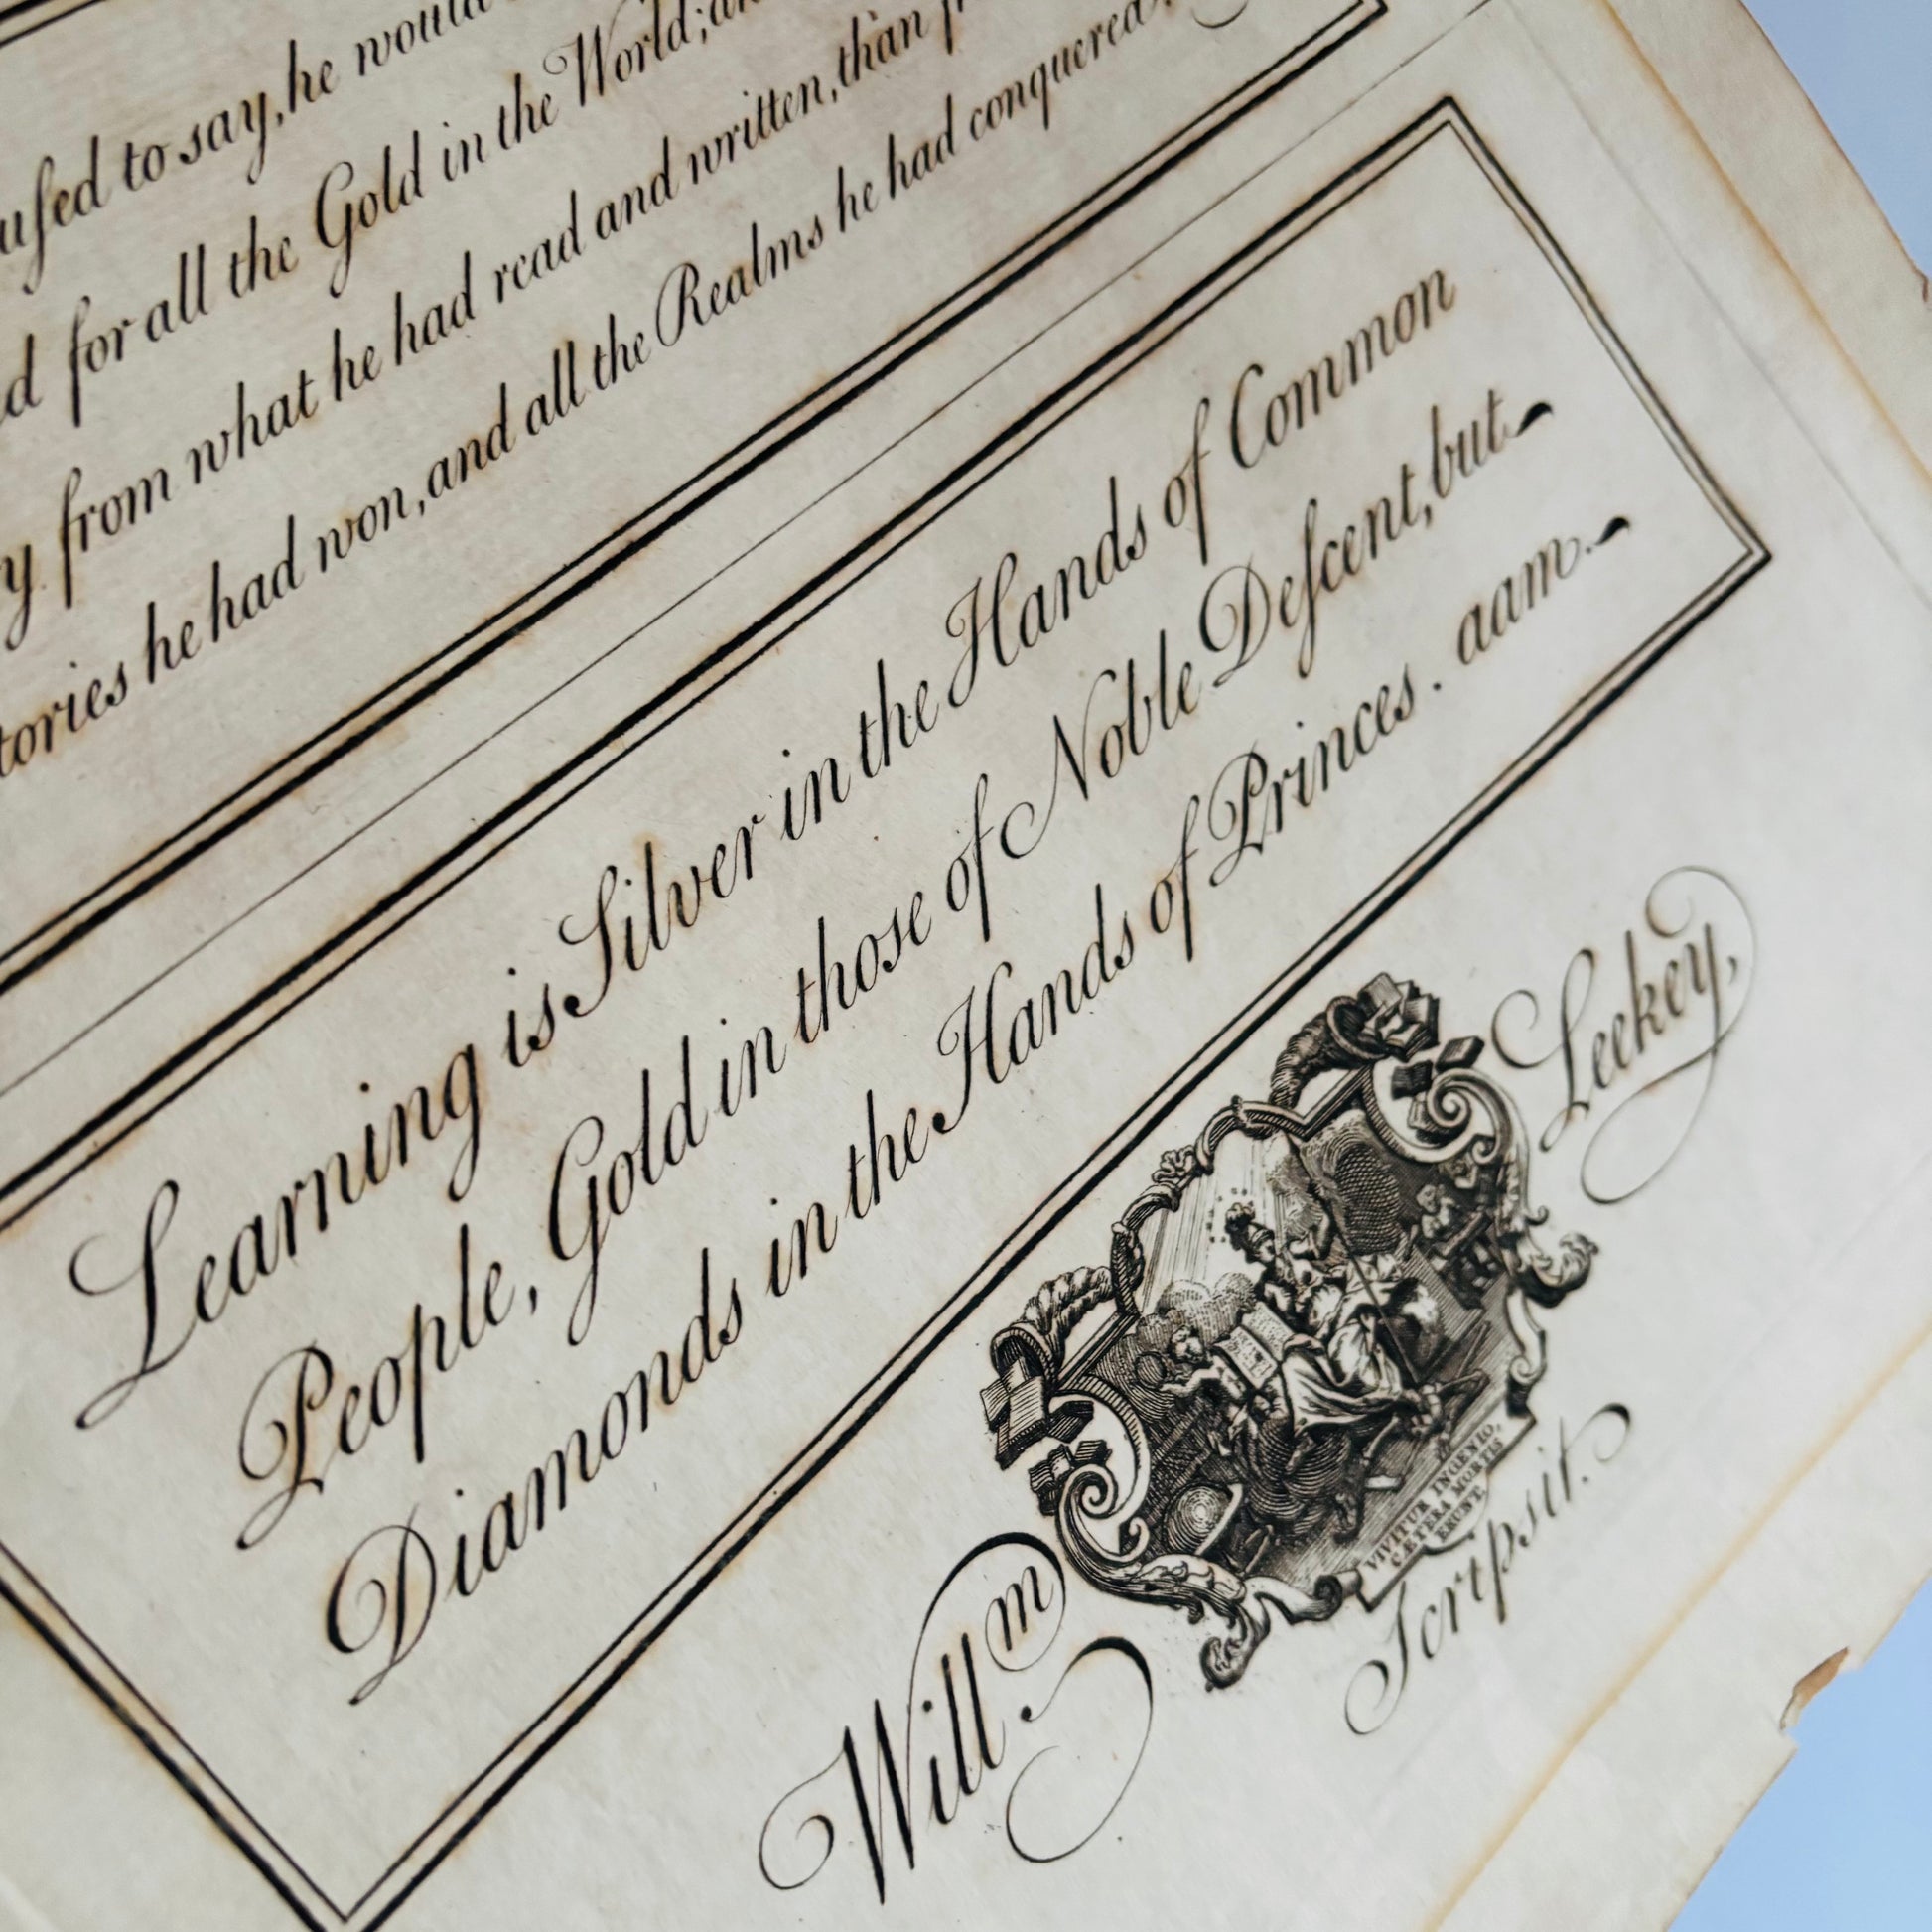 uſed to say, he would
for all the Gold in the World;
from what he had read and written, than
he had won, and all the Realms he had conquered.
Learning is Silver in the Hands of Common
People, Gold in those of Noble Deſcent, but
Diamonds in the Hands of Princes. aam.
Will.m Leekey,
VIVITUR INGENIO,
CÆTERA MORTIS
ERUNT.
Scripsit.